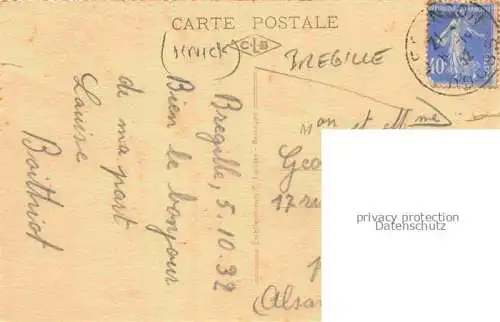 CARTE POSTALE
CLB
BREGILLE
Bregille, 5.10.32
Bien le bonjour
de ma part
Louise
Boithiot
Mon et Mme
Geo
17 ru
(Alsa
40c
privacy protection
Datenschutz